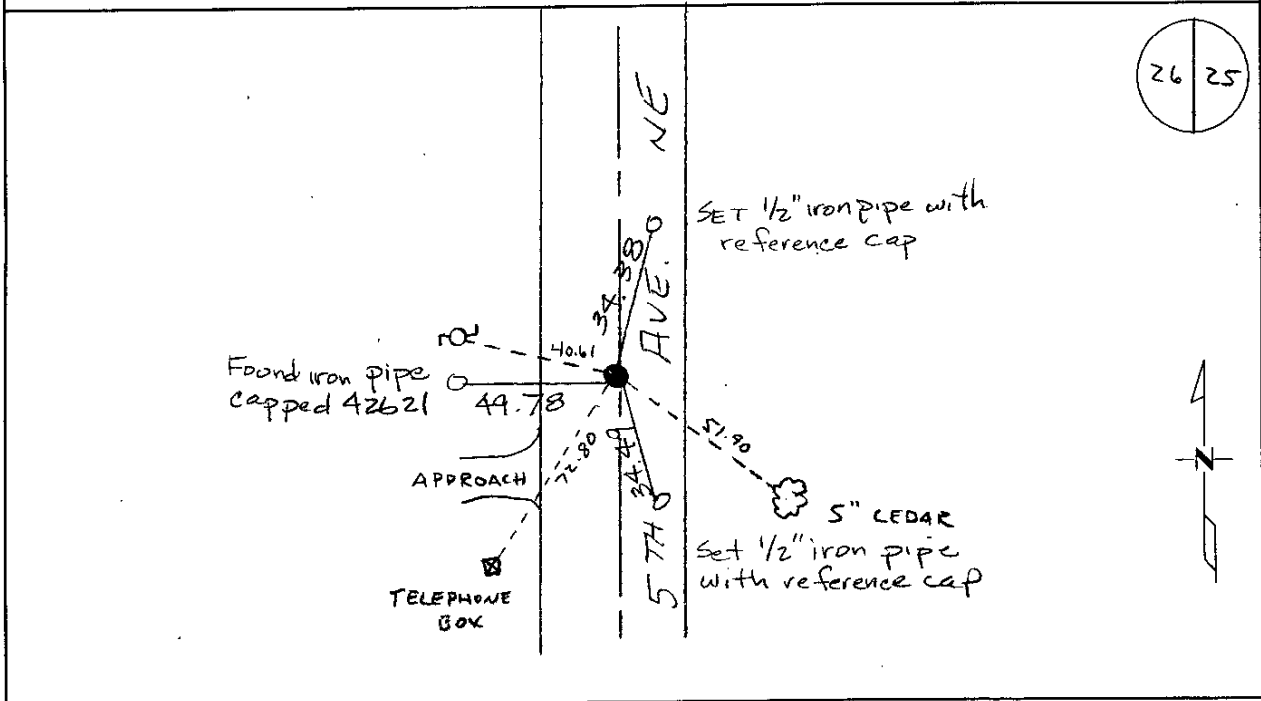 26 25
5TH AVE. NE
SET 1/2" iron pipe with
reference cap
34.38
40.61
Found iron pipe
capped 42621
49.78
72.80
34.49
51.90
APPROACH
5" CEDAR
Set 1/2" iron pipe
with reference cap
TELEPHONE
BOX
N